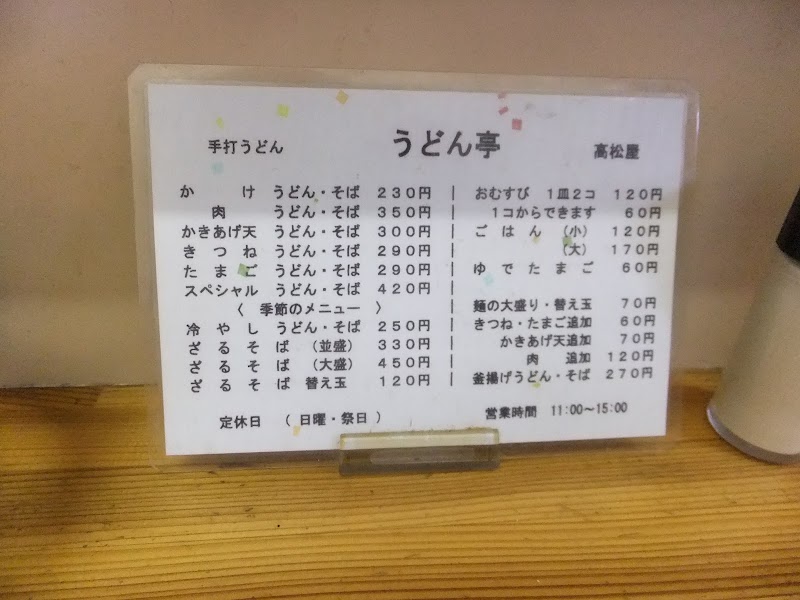 手打うどん うどん亭 高松屋
かけ うどん・そば 230円
肉 うどん・そば 350円
かきあげ天 うどん・そば 300円
きつね うどん・そば 290円
たまご うどん・そば 290円
スペシャル うどん・そば 420円
〈 季節のメニュー 〉
冷やし うどん・そば 250円
ざるそば (並盛) 330円
ざるそば (大盛) 450円
ざるそば 替え玉 120円
定休日 (日曜・祭日)
おむすび 1皿2コ 120円
1コからできます 60円
ごはん (小) 120円
(大) 170円
ゆでたまご 60円
麺の大盛り・替え玉 70円
きつね・たまご追加 60円
かきあげ天追加 70円
肉 追加 120円
釜揚げうどん・そば 270円
営業時間 11:00～15:00